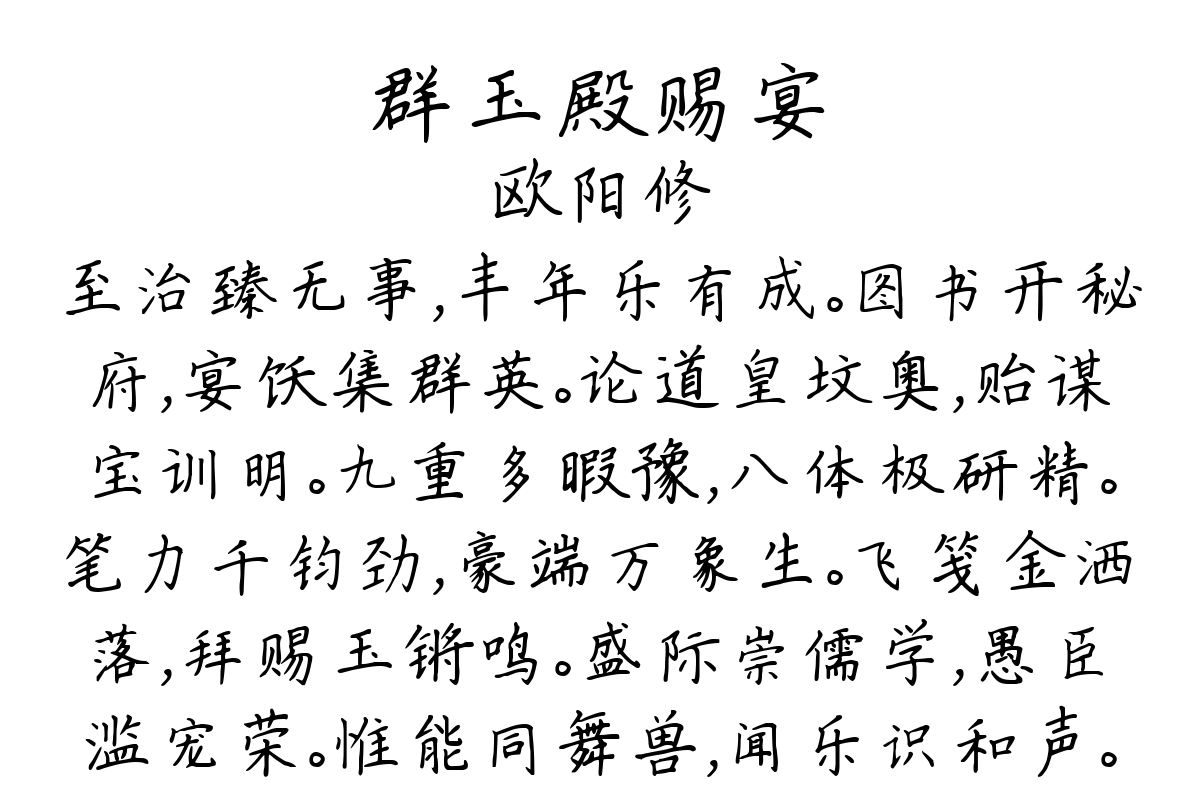 群玉殿赐宴
欧阳修
至治臻无事,丰年乐有成。图书开秘
府,宴饫集群英。论道皇坟奥,贻谋
宝训明。九重多暇豫,八体极研精。
笔力千钧劲,豪端万象生。飞笺金洒
落,拜赐玉锵鸣。盛际崇儒学,愚臣
滥宠荣。惟能同舞兽,闻乐识和声。